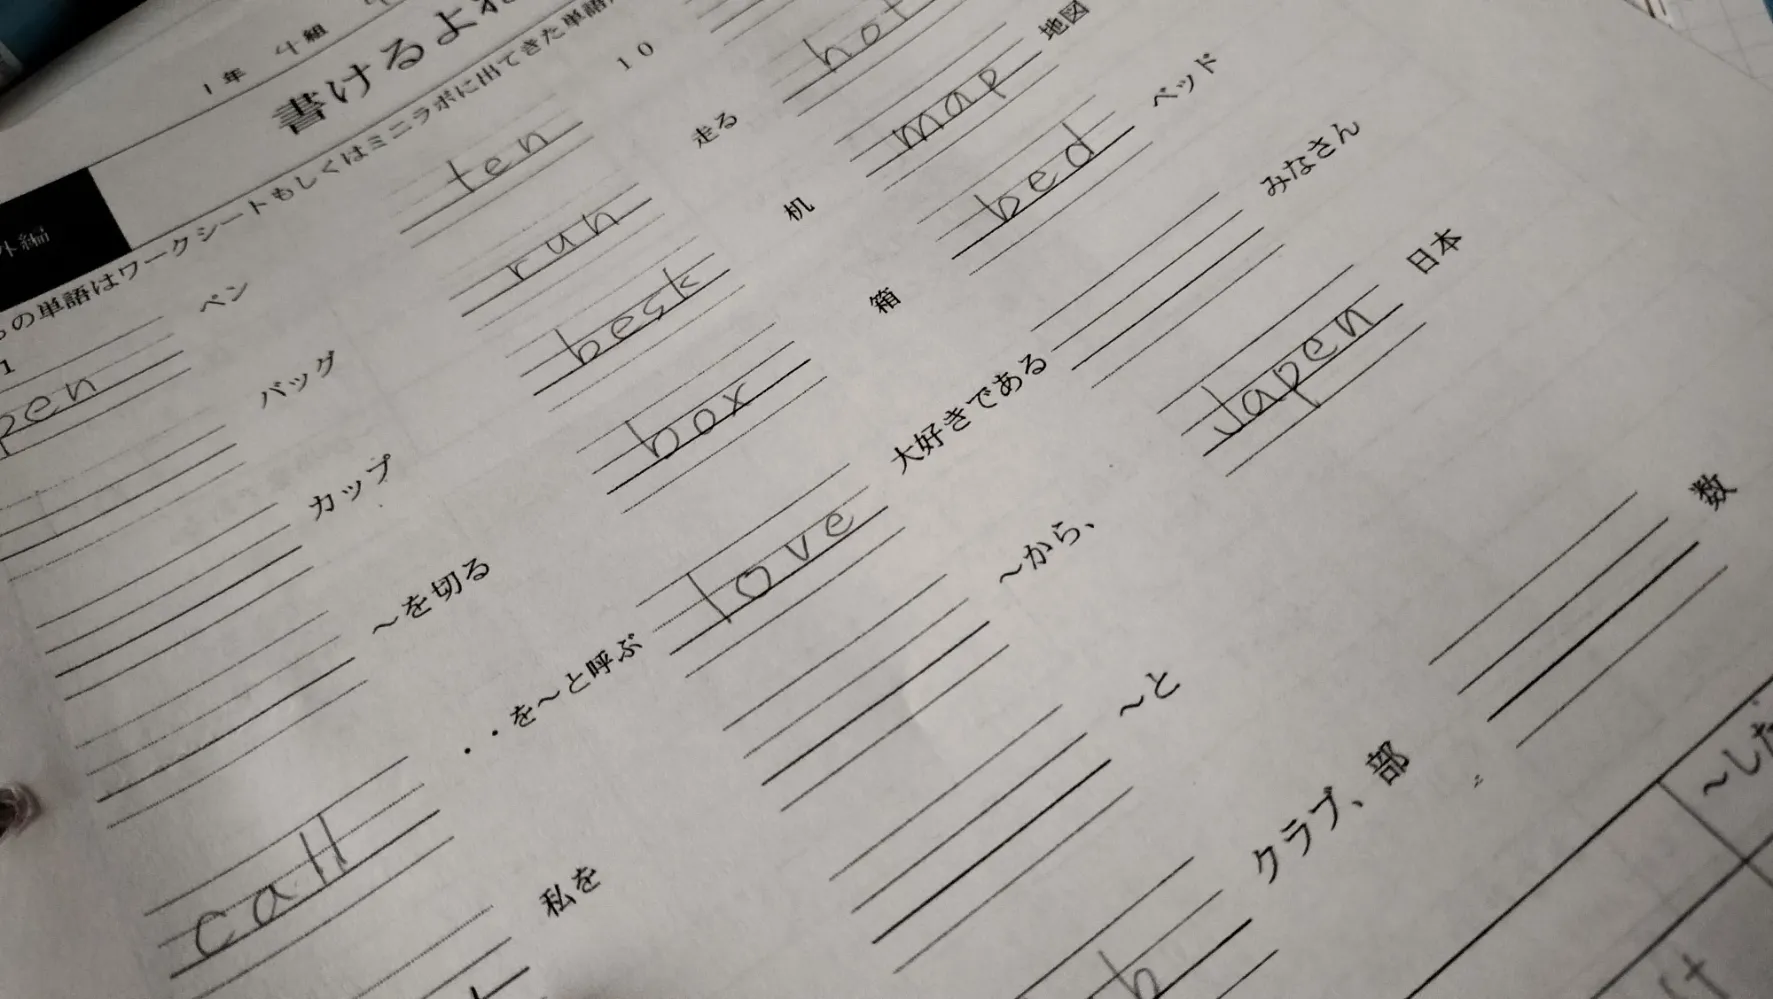 1年 4組
書けるよ
外編
の単語はワークシートもしくはミニラボに出てきた単語
1
pen
ペン
バッグ
カップ
～を切る
call
・・を～と呼ぶ
私を
ten
10
run
走る
besk
机
box
箱
love
大好きである
～から、
～と
クラブ、部
hot
map
地図
bed
ベッド
みなさん
Japen
日本
数
～した
b
け